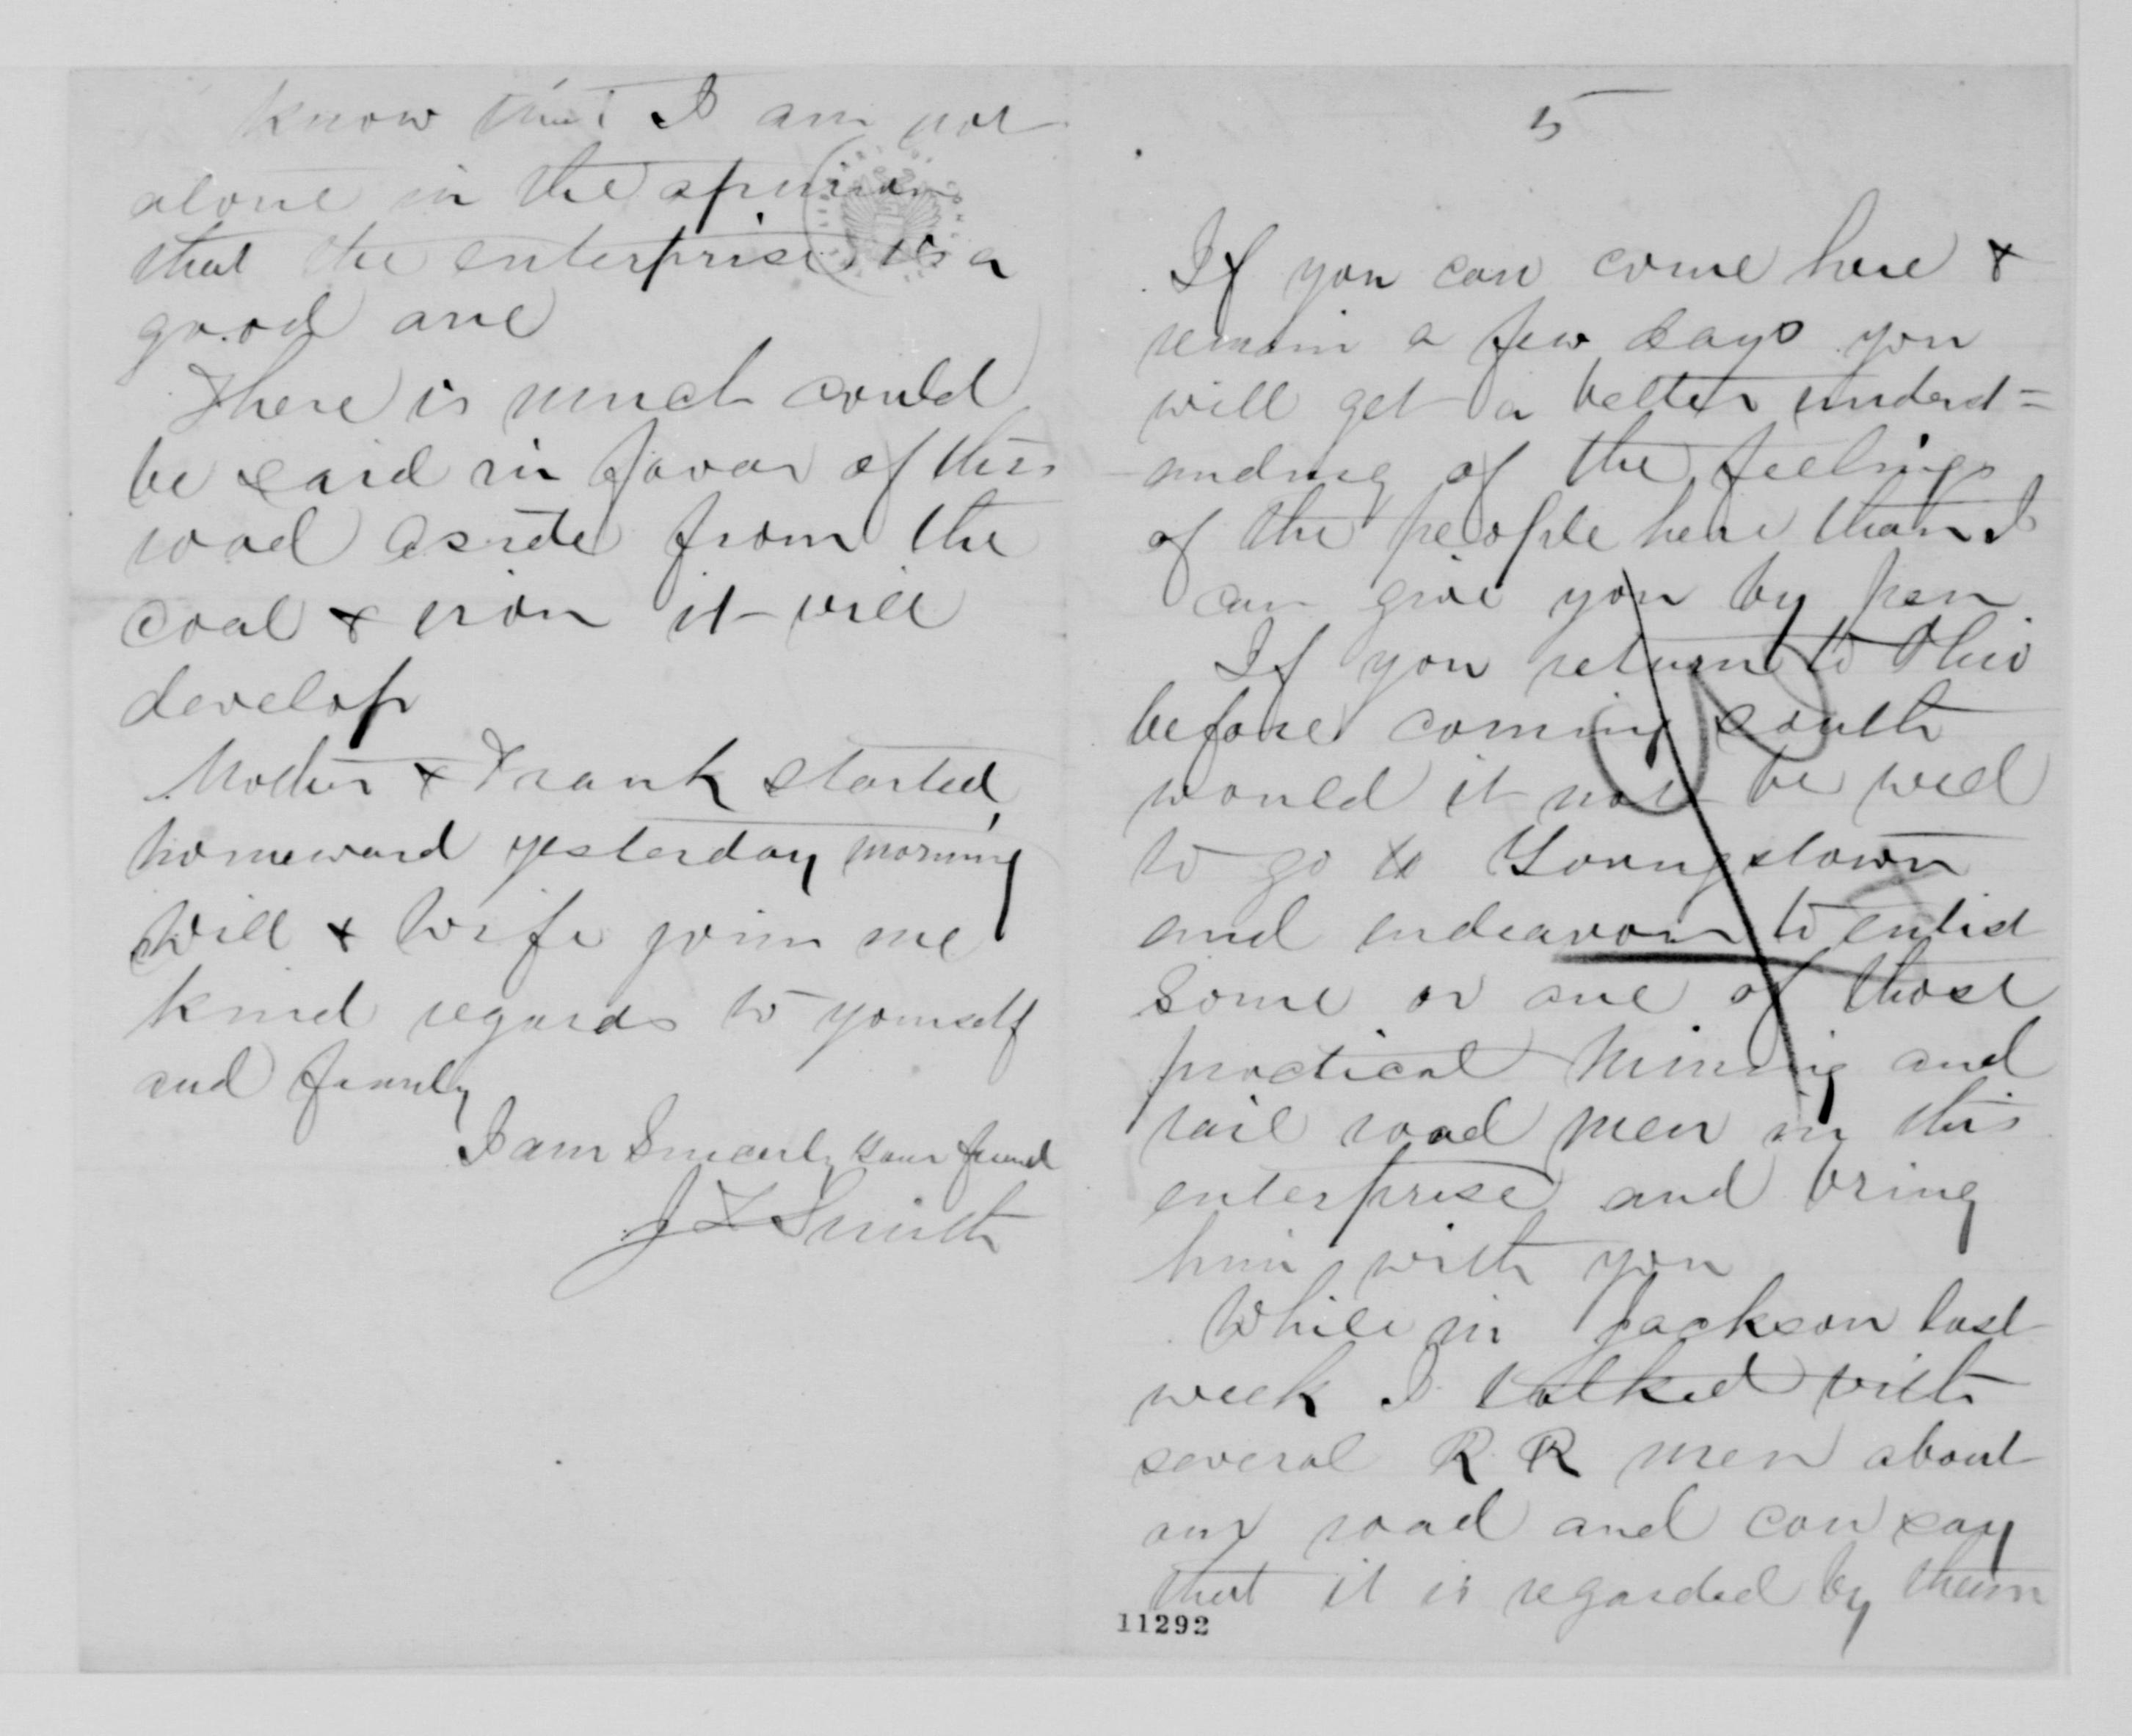 know that I am not
alone in the opinion
that the enterprise is a
good one
There is much could
be said in favor of this
road aside from the
coal & iron it will
develop
Mother & Frank started
homeward yesterday morning
Will & Wife join me
kind regards to yourself
and family
I am Sincerely Your friend
J F Smith
5
If you can come here &
remain a few days you
will get a better underst=
anding of the feelings
of the people here than I
can give you by pen
If you return to Ohio
before coming south
would it not be well
to go to Youngstown
and endeavor to enlist
some or one of those
practical Mining and
rail road men in this
enterprise and bring
him with you
While in Jackson last
week I talked with
several R R men about
our road and can say
that it is regarded by them
11292